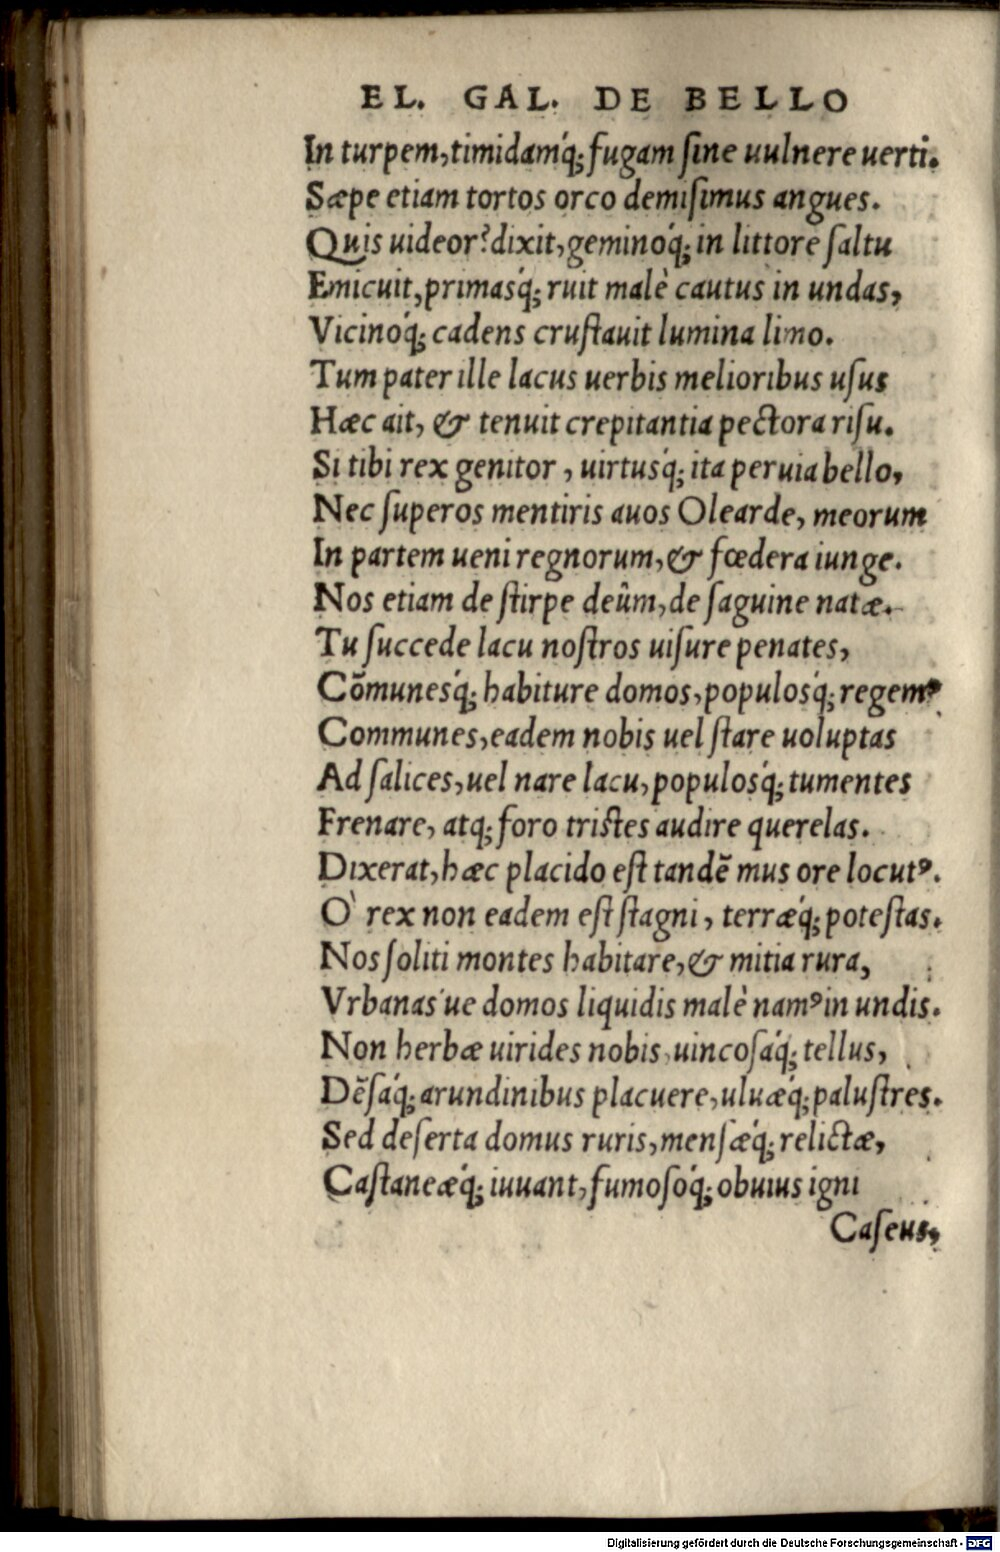 EL. GAL. DE BELLO
In turpem, timidamq́; fugam ſine uulnere uerti.
Sæpe etiam tortos orco demiſimus angues.
Quis uideor? dixit, geminoq́; in littore ſaltu
Emicuit, primasq́; ruit malè cautus in undas,
Vicinoq́; cadens cruſtauit lumina limo.
Tum pater ille lacus uerbis melioribus uſus
Hæc ait, & tenuit crepitantia pectora riſu.
Si tibi rex genitor, uirtusq́; ita peruia bello,
Nec ſuperos mentiris auos Olearde, meorum
In partem ueni regnorum, & fœdera iunge.
Nos etiam de ſtirpe deûm, de ſaguine natæ.
Tu ſuccede lacu noſtros uiſure penates,
Cōmunesq́; habiture domos, populosq́; regemꝰ
Communes, eadem nobis uel ſtare uoluptas
Ad ſalices, uel nare lacu, populosq́; tumentes
Frenare, atq; foro triſtes audire querelas.
Dixerat, hæc placido eſt tandē mus ore locutꝰ.
Ò rex non eadem eſt ſtagni, terræq́; poteſtas.
Nos ſoliti montes habitare, & mitia rura,
Vrbanas'ue domos liquidis malè namꝰ in undis.
Non herbæ uirides nobis, uincoſaq́; tellus,
Dēſaq́; arundinibus placuere, uluæq́; paluſtres.
Sed deſerta domus ruris, menſæq́; relictæ,
Caſtaneæq́; iuuant, fumoſoq́; obuius igni
Caſeus,
Digitalisierung gefördert durch die Deutsche Forschungsgemeinschaft - DFG